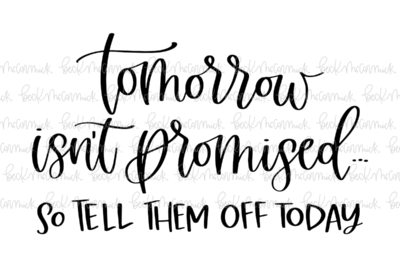 tomorrow
isn't promised...
SO TELL THEM OFF TODAY